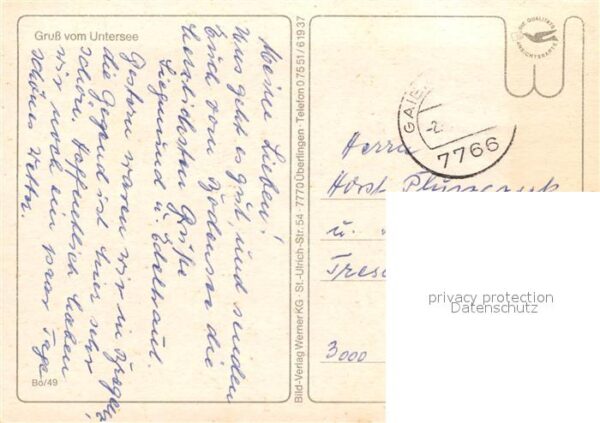 Gruß vom Untersee
Meine Lieben!
Uns geht es gut, und senden
Euch vom Bodensee die
herzlichsten Grüße
Siegmund u. Edeltraud.
Gestern waren wir in Bregenz,
die Gegend ist hier sehr
schön. Hoffentlich haben
wir noch ein paar Tage
schönes Wetter.
Bo/49
Bild-Verlag Werner KG · St.-Ulrich-Str. 54 · 7770 Überlingen · Telefon 07551/61937
DIE QUALITÄTS
ANSICHTSKARTE
GAIE
-2.
7766
Herrn
Horst
u.
Tresc
3000
privacy protection
Datenschutz